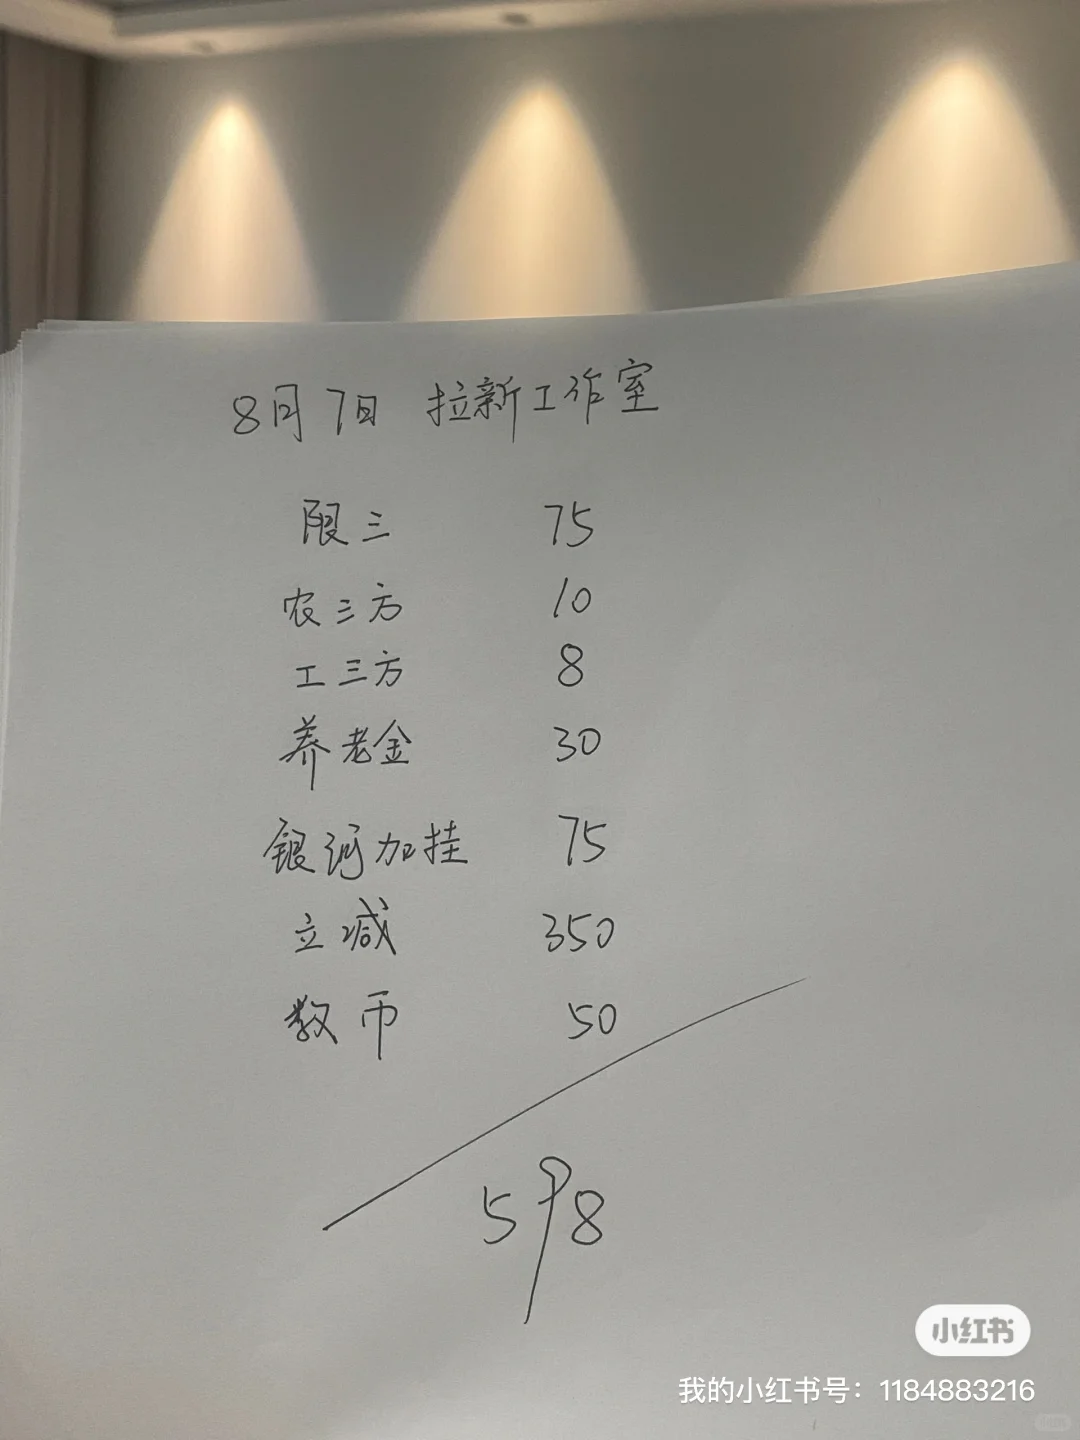 8月7日 拉新工作室
限三 75
农三方 10
工三方 8
养老金 30
银河加挂 75
立减 350
数币 50
598
小红书
我的小红书号：1184883216